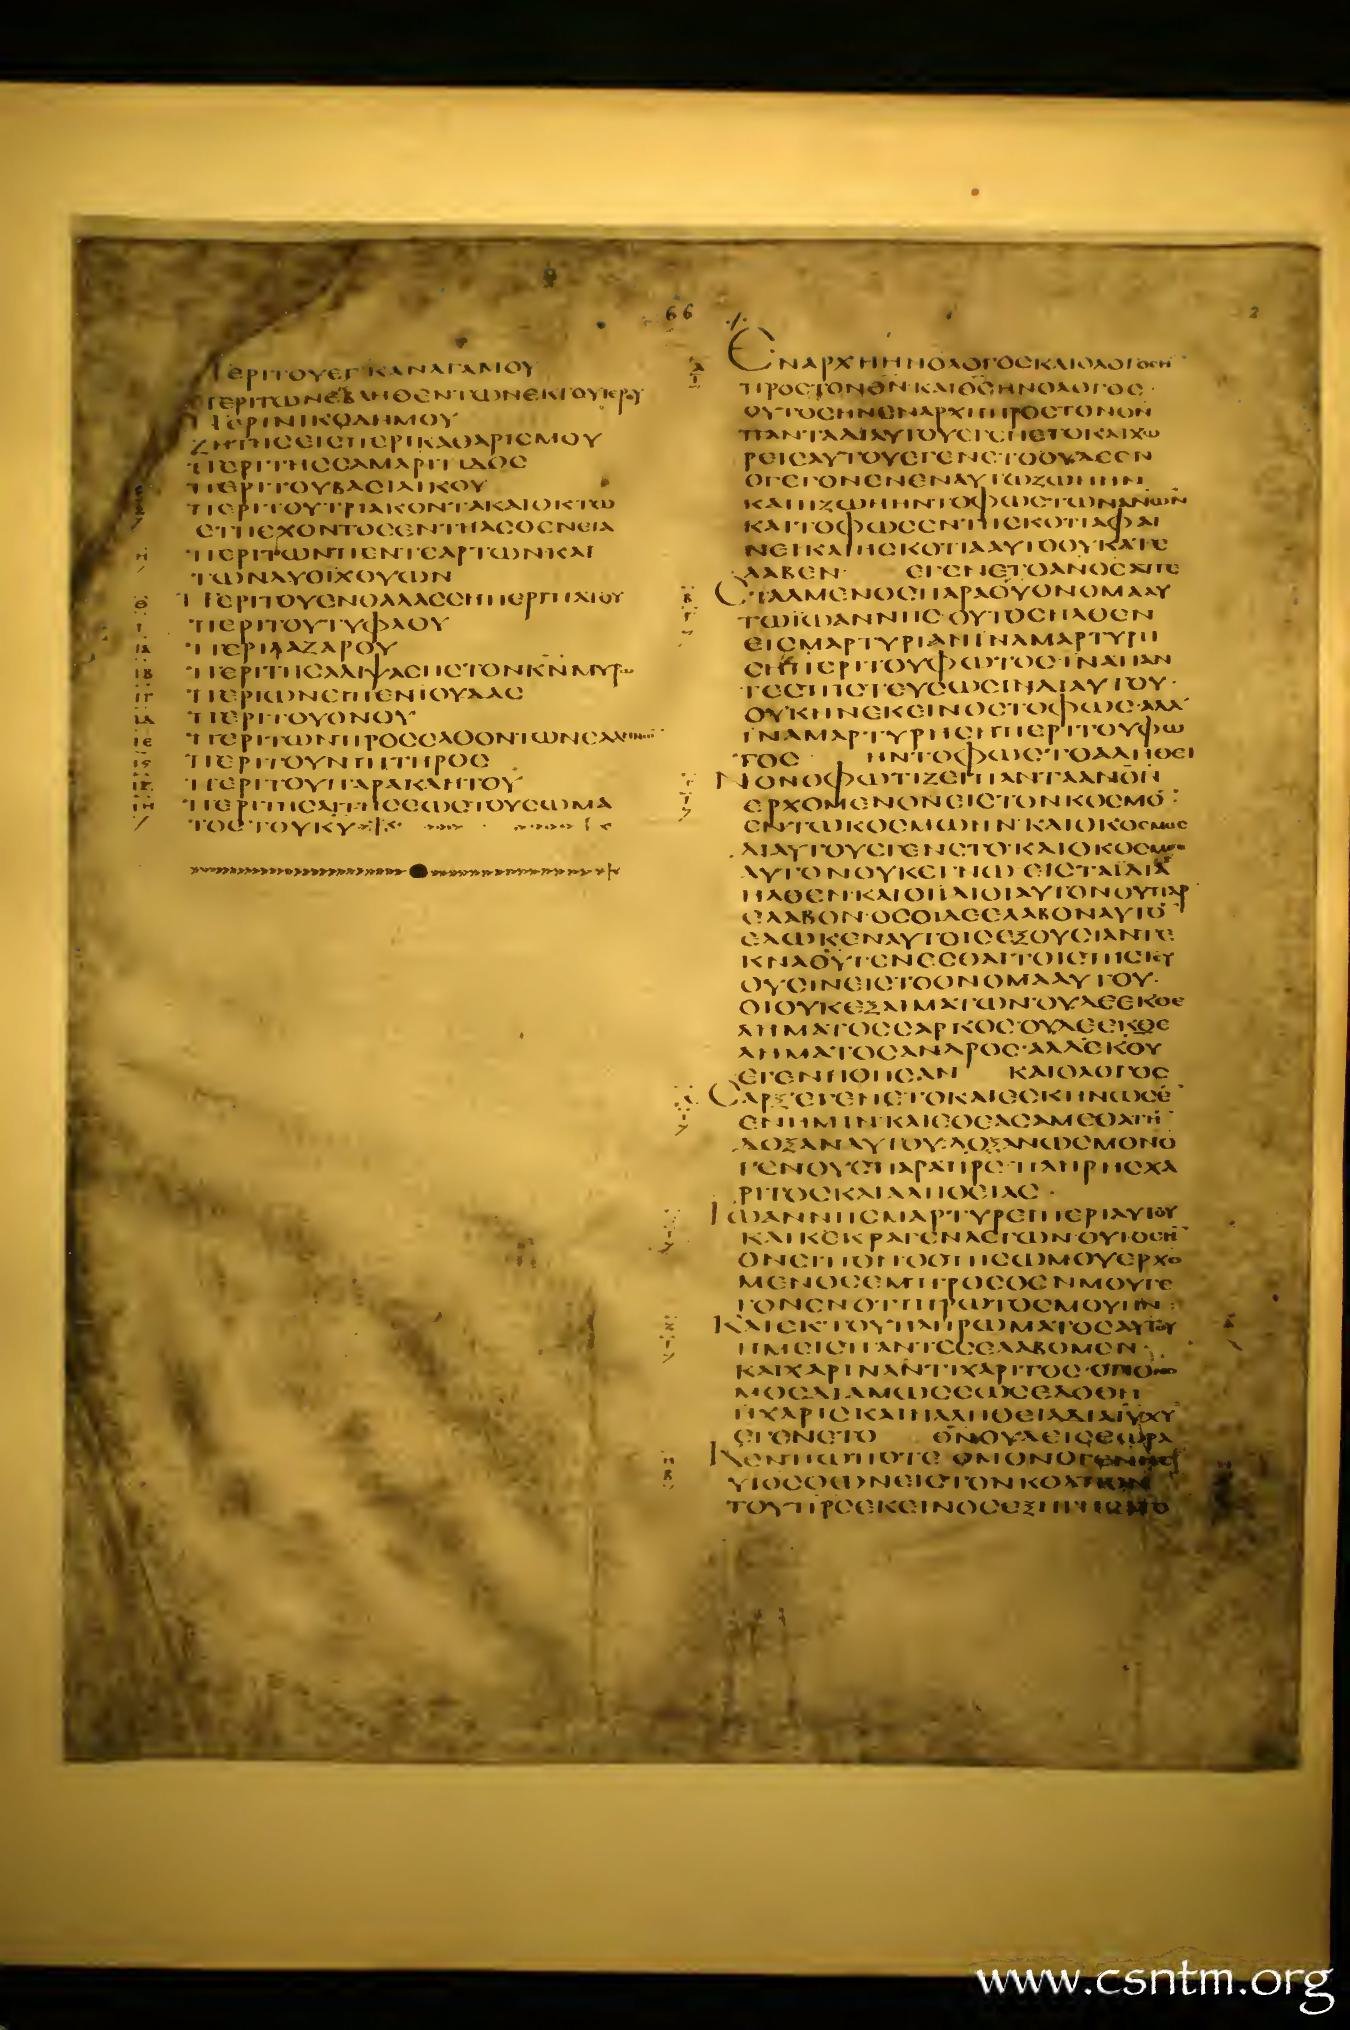 66
2
ΠΕΡΙΤΟΥΕΓΚΑΝΑΓΑΜΟΥ
ΠΕΡΙΤΩΝΕΚΒΛΗΘΕΝΤΩΝΕΚΤΟΥΙΕΡΟΥ
ΠΕΡΙΝΙΚΟΔΗΜΟΥ
ΖΗΤΗΣΕΙΣΠΕΡΙΚΑΘΑΡΙΣΜΟΥ
ΠΕΡΙΤΗΣΣΑΜΑΡΙΤΙΔΟΣ
ΠΕΡΙΤΟΥΒΑΣΙΛΙΚΟΥ
ΠΕΡΙΤΟΥΤΡΙΑΚΟΝΤΑΚΑΙΟΚΤΩ
ΕΤΗΕΧΟΝΤΟΣΕΝΤΗΑΣΘΕΝΕΙΑ
Η ΠΕΡΙΤΩΝΠΕΝΤΕΑΡΤΩΝΚΑΙ
ΤΩΝΔΥΟΙΧΘΥΩΝ
Θ ΠΕΡΙΤΟΥΕΝΘΑΛΑΣΣΗΠΕΡΙΠΑΤΟΥ
Ι ΠΕΡΙΤΟΥΤΥΦΛΟΥ
ΙΑ ΠΕΡΙΛΑΖΑΡΟΥ
ΙΒ ΠΕΡΙΤΗΣΑΛΙΨΑΣΗΣΤΟΝΚΝΜΥΡΩ
ΙΓ ΠΕΡΙΩΝΕΙΠΕΝΙΟΥΔΑΣ
ΙΔ ΠΕΡΙΤΟΥΟΝΟΥ
ΙΕ ΠΕΡΙΤΩΝΠΡΟΣΕΛΘΟΝΤΩΝΕΛΛΗΝΩΝ
ΙϚ ΠΕΡΙΤΟΥΝΙΠΤΗΡΟΣ
ΙΖ ΠΕΡΙΤΟΥΠΑΡΑΚΛΗΤΟΥ
ΙΗ ΠΕΡΙΤΗΣΑΙΤΗΣΕΩΣΤΟΥΣΩΜΑ
ΤΟΣΤΟΥΚΥ
ΕΝΑΡΧΗΗΝΟΛΟΓΟΣΚΑΙΟΛΟΓΟΣΗ
ΠΡΟΣΤΟΝΘΝ·ΚΑΙΘΣΗΝΟΛΟΓΟΣ·
ΟΥΤΟΣΗΝΕΝΑΡΧΗΠΡΟΣΤΟΝΘΝ
ΠΑΝΤΑΔΙΑΥΤΟΥΕΓΕΝΕΤΟΚΑΙΧΩ
ΡΕΙΣΑΥΤΟΥΕΓΕΝΕΤΟΟΥΔΕΕΝ
ΟΓΕΓΟΝΕΝΕΝΑΥΤΩΖΩΗΗΝ
ΚΑΙΗΖΩΗΗΝΤΟΦΩΣΤΩΝΑΝΩΝ
ΚΑΙΤΟΦΩΣΕΝΤΗΣΚΟΤΙΑΦΑΙ
ΝΕΙΚΑΙΗΣΚΟΤΙΑΑΥΤΟΟΥΚΑΤΕ
ΛΑΒΕΝ· ΕΓΕΝΕΤΟΑΝΟΣΑΠΕ
ΣΤΑΛΜΕΝΟΣΠΑΡΑΘΥΟΝΟΜΑΑΥ
ΤΩΪΩΑΝΝΗΣ·ΟΥΤΟΣΗΛΘΕΝ
ΕΙΣΜΑΡΤΥΡΙΑΝΙΝΑΜΑΡΤΥΡΗ
ΣΗΠΕΡΙΤΟΥΦΩΤΟΣ·ΙΝΑΠΑΝ
ΤΕΣΠΙΣΤΕΥΣΩΣΙΝΔΙΑΥΤΟΥ·
ΟΥΚΗΝΕΚΕΙΝΟΣΤΟΦΩΣ·ΑΛΛ
ΙΝΑΜΑΡΤΥΡΗΣΗΠΕΡΙΤΟΥΦΩ
ΤΟΣ· ΗΝΤΟΦΩΣΤΟΑΛΗΘΕΙ
ΝΟΝΟΦΩΤΙΖΕΙΠΑΝΤΑΑΝΟΝ
ΕΡΧΟΜΕΝΟΝΕΙΣΤΟΝΚΟΣΜΟ·
ΕΝΤΩΚΟΣΜΩΗΝ·ΚΑΙΟΚΟΣΜΟΣ
ΔΙΑΥΤΟΥΕΓΕΝΕΤΟ·ΚΑΙΟΚΟΣΜΟΣ
ΑΥΤΟΝΟΥΚΕΓΝΩ·ΕΙΣΤΑΙΔΙΑ
ΗΛΘΕΝ·ΚΑΙΟΙΙΔΙΟΙΑΥΤΟΝΟΥΠΑΡ
ΕΛΑΒΟΝ·ΟΣΟΙΔΕΕΛΑΒΟΝΑΥΤΟ
ΕΔΩΚΕΝΑΥΤΟΙΣΕΞΟΥΣΙΑΝΤΕ
ΚΝΑΘΥΓΕΝΕΣΘΑΙΤΟΙΣΠΙΣΤΕΥ
ΟΥΣΙΝΕΙΣΤΟΟΝΟΜΑΑΥΤΟΥ·
ΟΙΟΥΚΕΞΑΙΜΑΤΩΝ·ΟΥΔΕΕΚΘΕ
ΛΗΜΑΤΟΣΣΑΡΚΟΣ·ΟΥΔΕΕΚΘΕ
ΛΗΜΑΤΟΣΑΝΔΡΟΣ·ΑΛΛΕΚΘΥ
ΕΓΕΝΝΗΘΗΣΑΝ ΚΑΙΟΛΟΓΟΣ
ΣΑΡΞΕΓΕΝΕΤΟΚΑΙΕΣΚΗΝΩΣΕ
ΕΝΗΜΙΝ·ΚΑΙΕΘΕΑΣΑΜΕΘΑΤΗ
ΔΟΞΑΝΑΥΤΟΥ·ΔΟΞΑΝΩΣΜΟΝΟ
ΓΕΝΟΥΣΠΑΡΑΠΡΣ·ΠΛΗΡΗΣΧΑ
ΡΙΤΟΣΚΑΙΑΛΗΘΕΙΑΣ·
ΙΩΑΝΝΗΣΜΑΡΤΥΡΕΙΠΕΡΙΑΥΤΟΥ
ΚΑΙΚΕΚΡΑΓΕΝΛΕΓΩΝ·ΟΥΤΟΣΗ
ΟΝΕΙΠΟΝΟΟΠΙΣΩΜΟΥΕΡΧΟ
ΜΕΝΟΣΕΜΠΡΟΣΘΕΝΜΟΥΓΕ
ΓΟΝΕΝΟΤΙΠΡΩΤΟΣΜΟΥΗΝ·
ΚΑΙΕΚΤΟΥΠΛΗΡΩΜΑΤΟΣΑΥΤΟΥ
ΗΜΕΙΣΠΑΝΤΕΣΕΛΑΒΟΜΕΝ·
ΚΑΙΧΑΡΙΝΑΝΤΙΧΑΡΙΤΟΣ·ΟΤΙΟΝΟ
ΜΟΣΔΙΑΜΩΣΕΩΣΕΔΟΘΗ
ΗΧΑΡΙΣΚΑΙΗΑΛΗΘΕΙΑΔΙΑΙΥΧΥ
ΕΓΕΝΕΤΟ ΘΝΟΥΔΕΙΣΕΩΡΑ
ΚΕΝΠΩΠΟΤΕ·ΟΜΟΝΟΓΕΝΗΣ
ΥΙΟΣΟΩΝΕΙΣΤΟΝΚΟΛΠΟΝ
ΤΟΥΠΡΣΕΚΕΙΝΟΣΕΞΗΓΗΣΑΤΟ
www.csntm.org